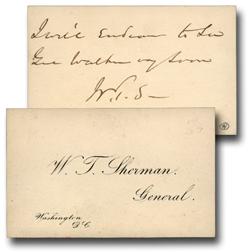 I will Endeavor to See
Gen Walker very soon
W.T.S—
W. T. Sherman.
General.
Washington
D.C.